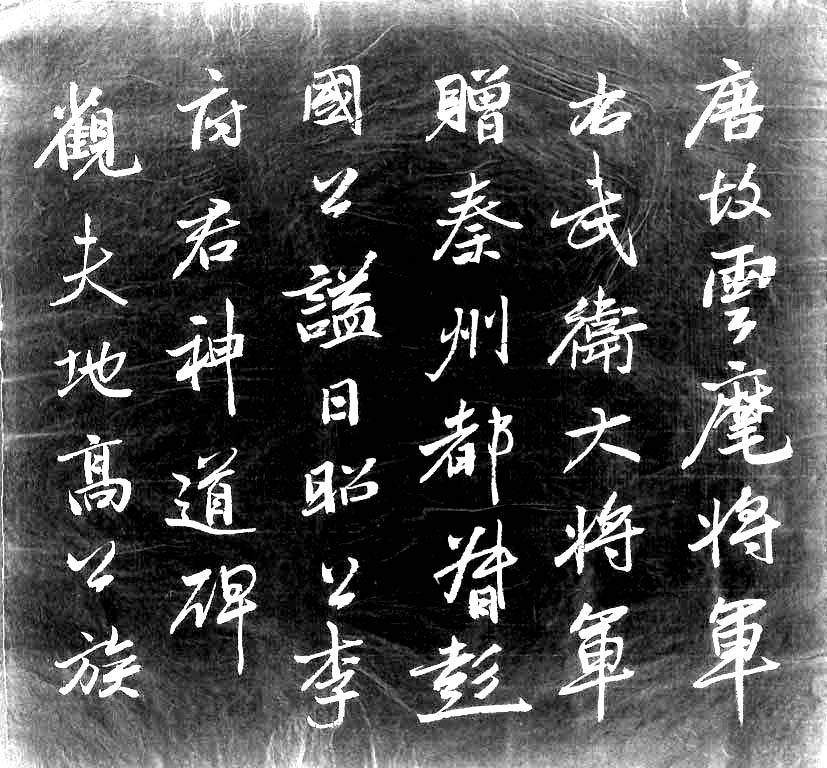 唐故雲麾將軍
右武衛大將軍
贈秦州都督彭
國公謚曰昭公李
府君神道碑
觀夫地高公族